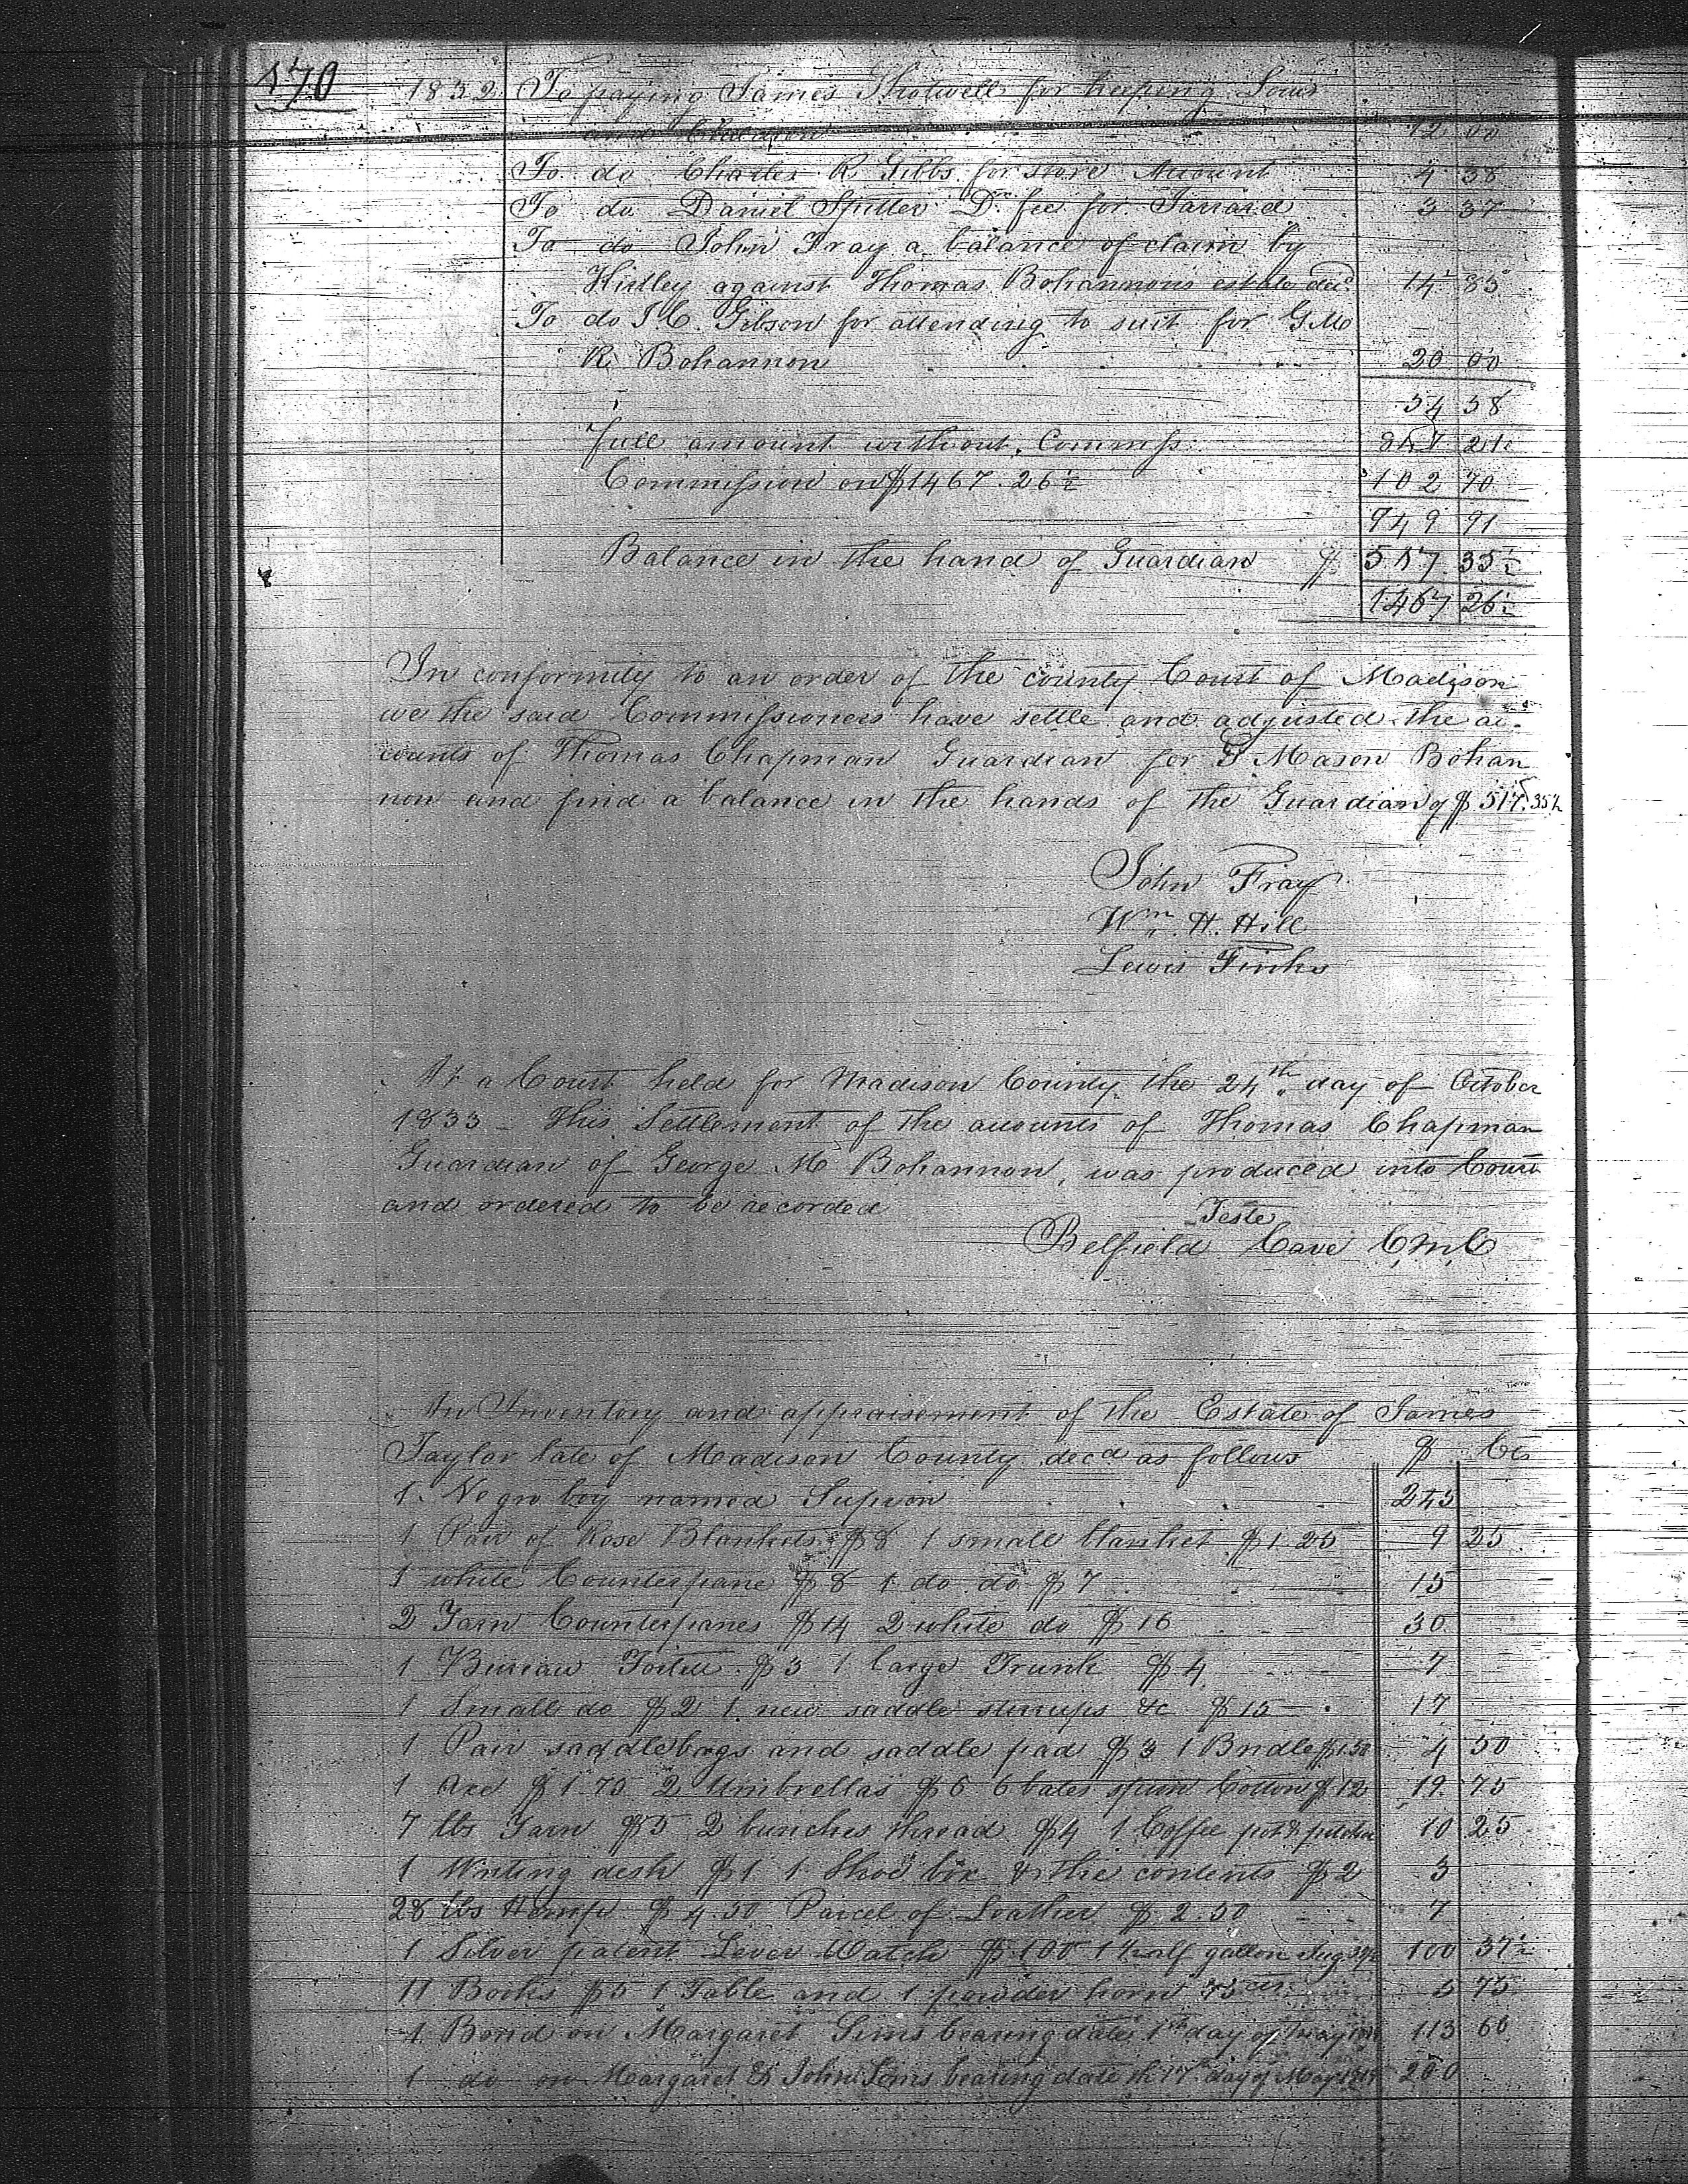 170
1832 To paying James Shotwell for keeping Louis
and 12 00
To do Charles R Gibbs for store Account 4 38
To do Daniel Spiller D. fee for Jarrard 3 37
To do John Fray a balance of claim by
Hidley against Thomas Bohannons estate decd 14 83
To do J. C. Gibson for attending to suit for G. Mo
R. Bohannon 20 00
54 58
full amount without Commiss
Commission on $1467.26½ 102 70
949 91
Balance in the hand of Guardian $ 517 35½
1467 26½
In conformity to an order of the county Court of Madison
we the said Commissioners have settle and adjusted the ac-
counts of Thomas Chapman Guardian for G Mason Bohan
non and find a balance in the hands of the Guardian of $ 517.35½
John Fray
Wm. H. Hill
Lewis Finks
At a Court held for Madison County the 24th day of October
1833 - This Settlement of the accounts of Thomas Chapman
Guardian of George M Bohannon, was produced into Court
and ordered to be recorded
Teste
Belfield Cave C,M,C
An Inventory and appraisement of the Estate of James
Taylor late of Madison County decd as follows $ Cts
1 Negro boy named 245
1 Pair of Rose Blankets $8 1 small blanket $1.25 9 25
1 white Counterpane $8 1 do do $7 15
2 Yarn Counterpanes $14 2 white do $16 30
1 Bureau $3 1 large Trunk $4 7
1 Small do $2 1 new saddle stirrups &c $15 17
1 Pair saddlebags and saddle pad $3 1 Bridle $1.50 4 50
1 Axe $1.75 2 Umbrellas $6 6 bales spun Cotton $12 19 75
7 lbs Yarn $5 2 bunches thread $4 1 Coffee pot & pitcher 10 25
1 Writing desk $1 1 Shoe box & the contents $2 3
28 lbs Hemp $4.50 Parcel of Leather $2.50 7
1 Silver patent Lever Watch $100 1 half gallon Jug 37½ 100 37½
11 Books $5 1 Table and 1 powder horn 75 cts 5 75
1 Bond on Margaret Sims bearing date 1st day of May 113 60
1 do on Margaret & John Sims bearing date th 17th day of May 200